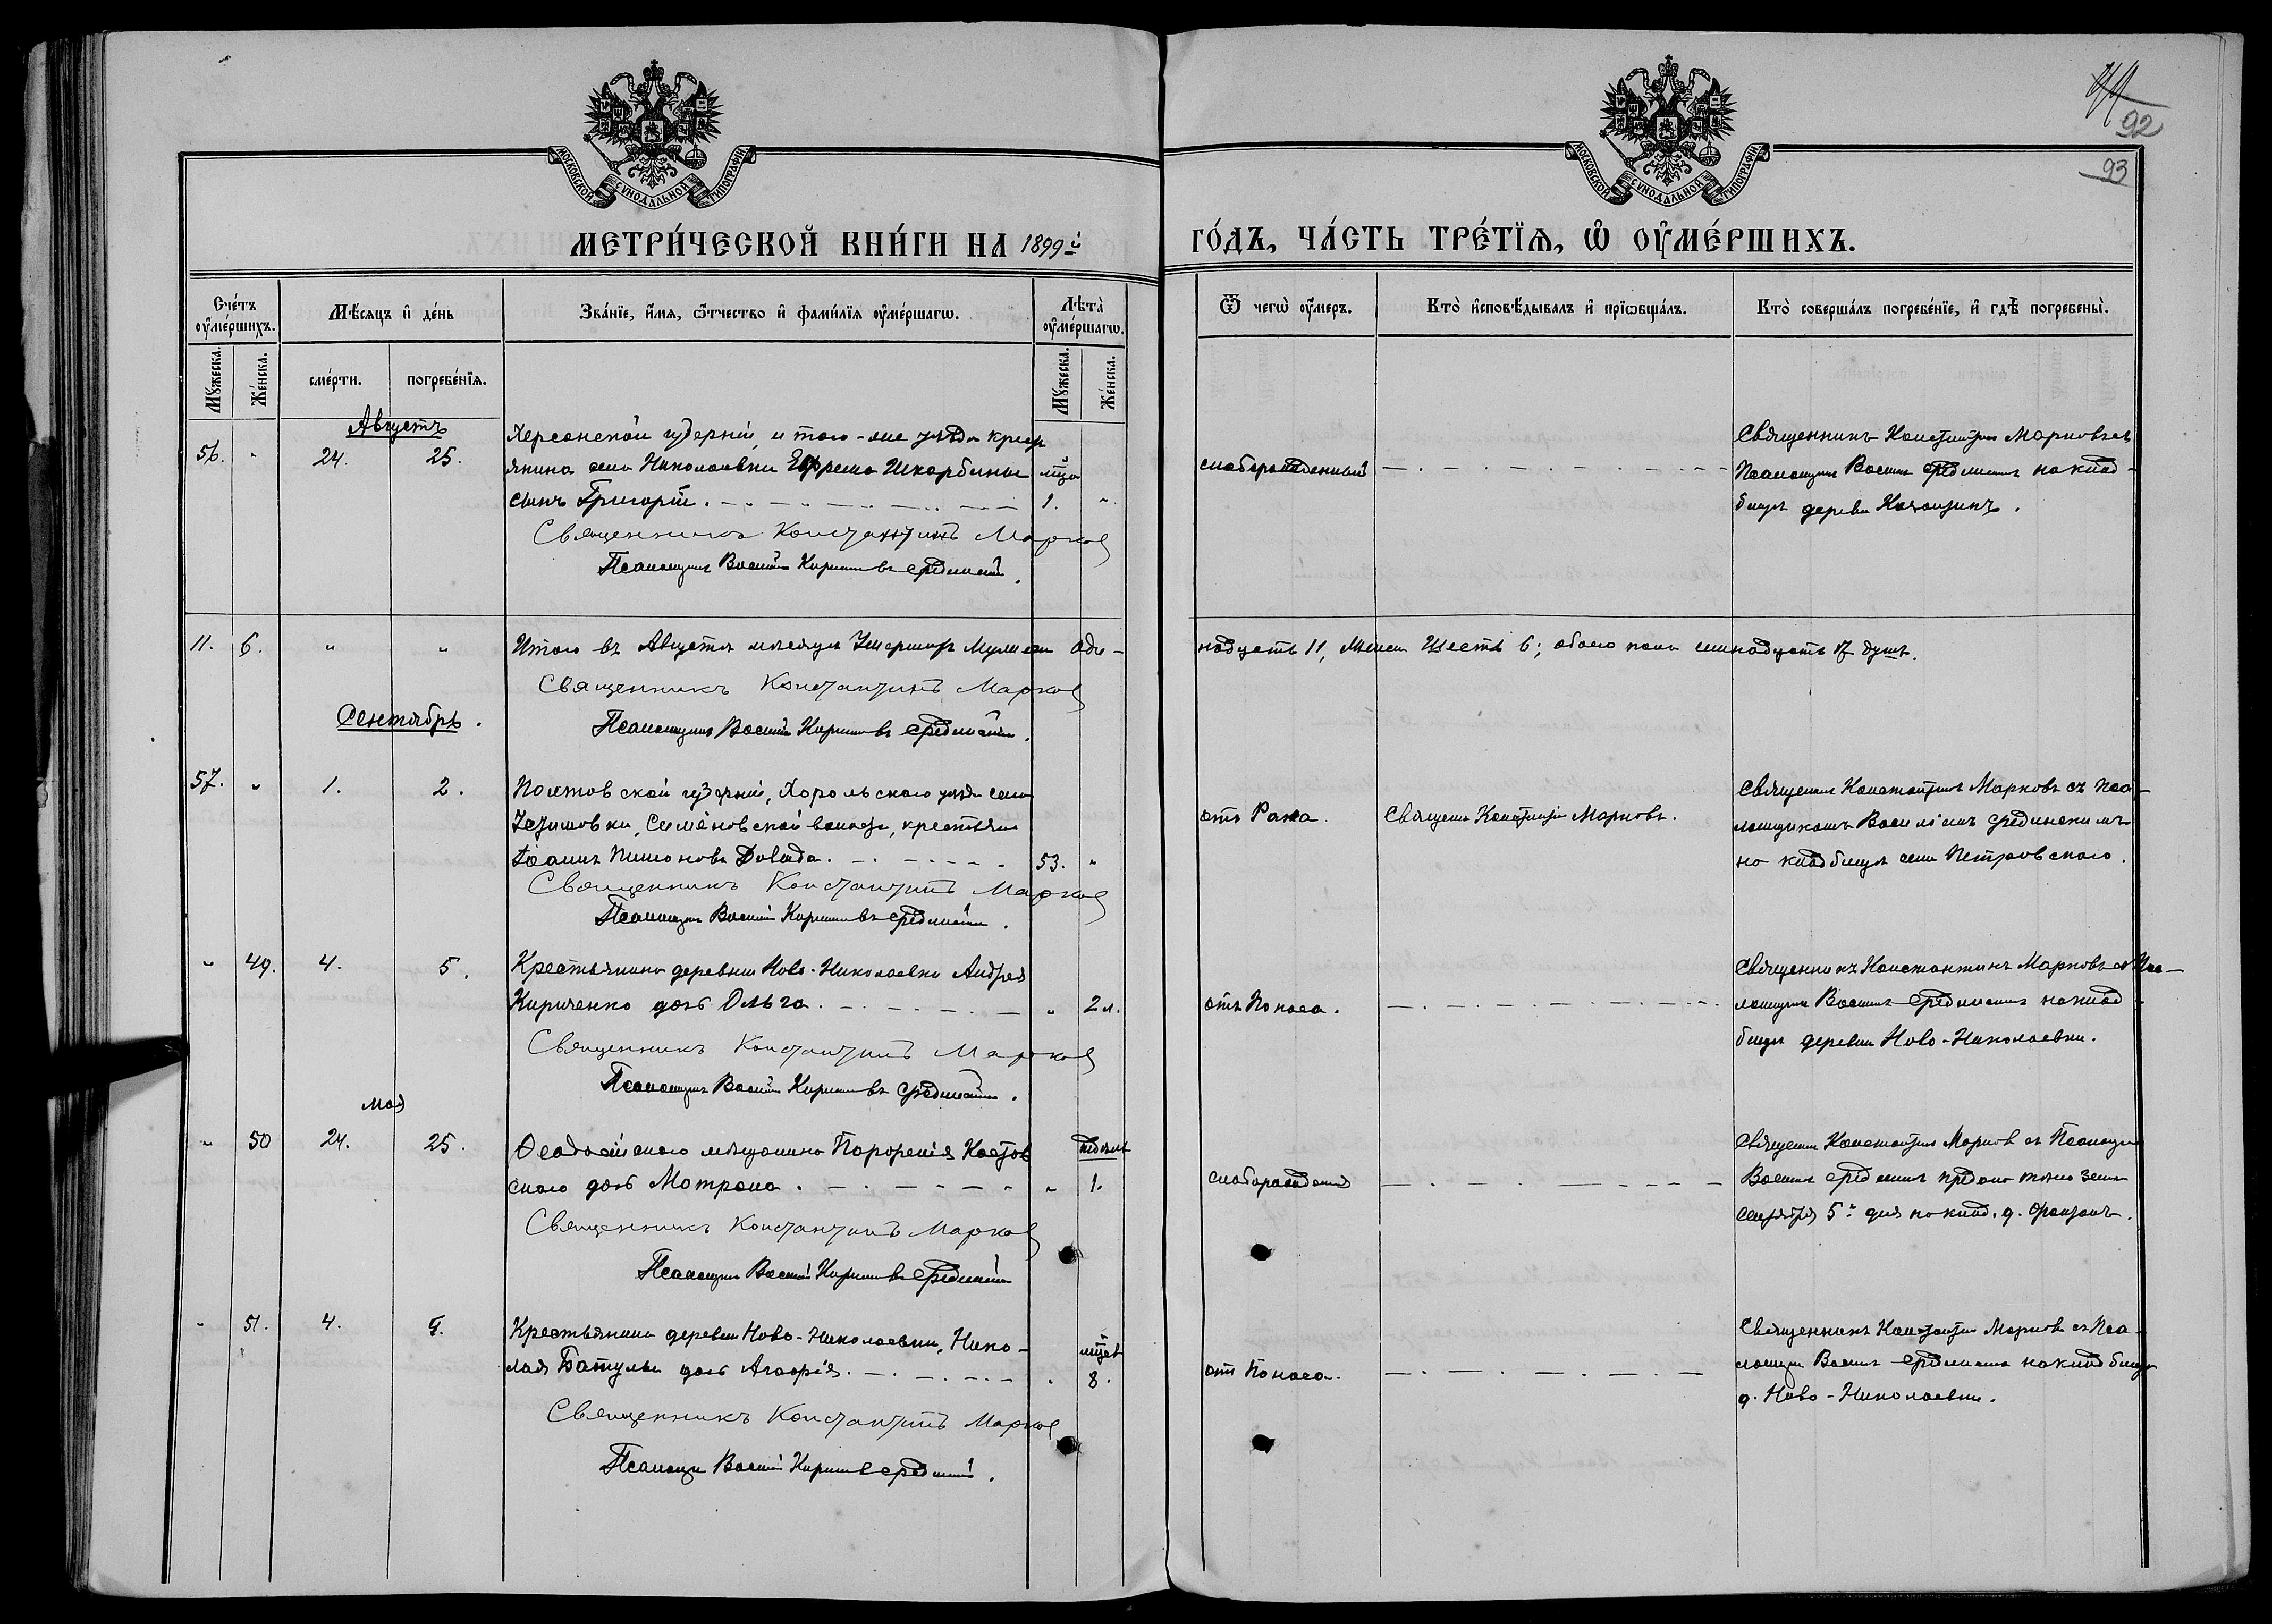 92
93
МОСКОВСКОЙ СУНОДАЛЬНОЙ ТИПОГРАФІИ
МОСКОВСКОЙ СУНОДАЛЬНОЙ ТИПОГРАФІИ
МЕТРИ́ЧЕСКОЙ КНИ́ГИ НА 1899й
ГО́ДЪ, ЧА́СТЬ ТРЕ́ТЇѦ, Ѡ҆ ОУ҆МЕ́РШИХЪ.
Сче́тъ оу҆ме́ршихъ.
Мѣ́сѧцъ и҆ де́нь
Зва́нїе, и҆́мѧ, ѻ҆́тчество и҆ фами́лїѧ оу҆ме́ршагѡ.
Лѣ́та оу҆ме́ршагѡ.
Ѿ чегѡ̀ оу҆́меръ.
Кто̀ и҆сповѣ́дывалъ и҆ прїѡбща́лъ.
Кто̀ соверша́лъ погребе́нїе, и҆ гдѣ̀ погребены̀.
Мꙋ́жеска.
Же́нска.
сме́рти.
погребе́нїѧ.
Мꙋ́жеска.
Же́нска.
Августъ
56. " 24. 25.
Херсонской губерніи, и того-же уѣзда крест
янина села Николаевки Ефрема Шкарбины мца
сынъ Григорій. 1. "
Священникъ Константинъ Марковъ
Псаломщикъ Василій Кириловъ Срединскій.
слаборожденный
Священникъ Константинъ Марковъ съ
Псаломщик Василіем Срединским на клад-
бищѣ деревн
11. 6. " "
Итого въ Августѣ мѣсяцѣ Умерших Мужеска оди-
надцать 11, Женска Шесть 6; обоего пола семнадцать 17 душъ.
Священникъ Константинъ Марковъ
Псаломщикъ Василій Кириловъ Срединскій.
Сентябрь.
57. " 1. 2.
Полтовской губерніи, Хорольского уѣзда села
Устимовки, Семёновской волости, крестьян
Іоаннъ Пимоновъ Довида. 53. "
Священникъ Константинъ Марковъ
Псаломщикъ Василій Кириловъ Срединскій.
отъ Рака.
Священ Константин Марковъ.
Священник Константинъ Марковъ съ Пса-
ломщикомъ Василіемъ Срединскимъ
на кладбищѣ села Петровского.
" 49. 4. 5.
Крестьянина деревни Ново-Николаевки Андрея
Кириченко дочь Ольга. " 2 л.
Священникъ Константинъ Марковъ
Псаломщикъ Василій Кириловъ Срединскій.
отъ Поноса.
Священникъ Константинъ Марковъ съ Пса-
ломщик Василіем Срединским на клад
бищѣ деревни Ново-Николаевки.
Мая
" 50 24. 25.
Ѳеодосійского мѣщанина Порфирія Костов
ского дочь Мотрона. " 1.
недѣля
Священникъ Константинъ Марковъ
Псаломщикъ Василій Кириловъ Срединскій
слаборожденная
Священник Константин Марков съ Псаломщ
Василіем Срединским предано тѣло земли
Сентября 5го дня на клад. д.
" 51. 4. 9.
Крестьянина деревни Ново-Николаевки, Нико-
лая Батулы дочь Агафія. " 8.
мцев
Священникъ Константинъ Марковъ
Псаломщи Василій Кирилов Срединскій.
отъ Поноса.
Священникъ Константин Марков съ Пса-
ломщик Василіем Срединским на кладбищѣ
д. Ново-Николаевки.